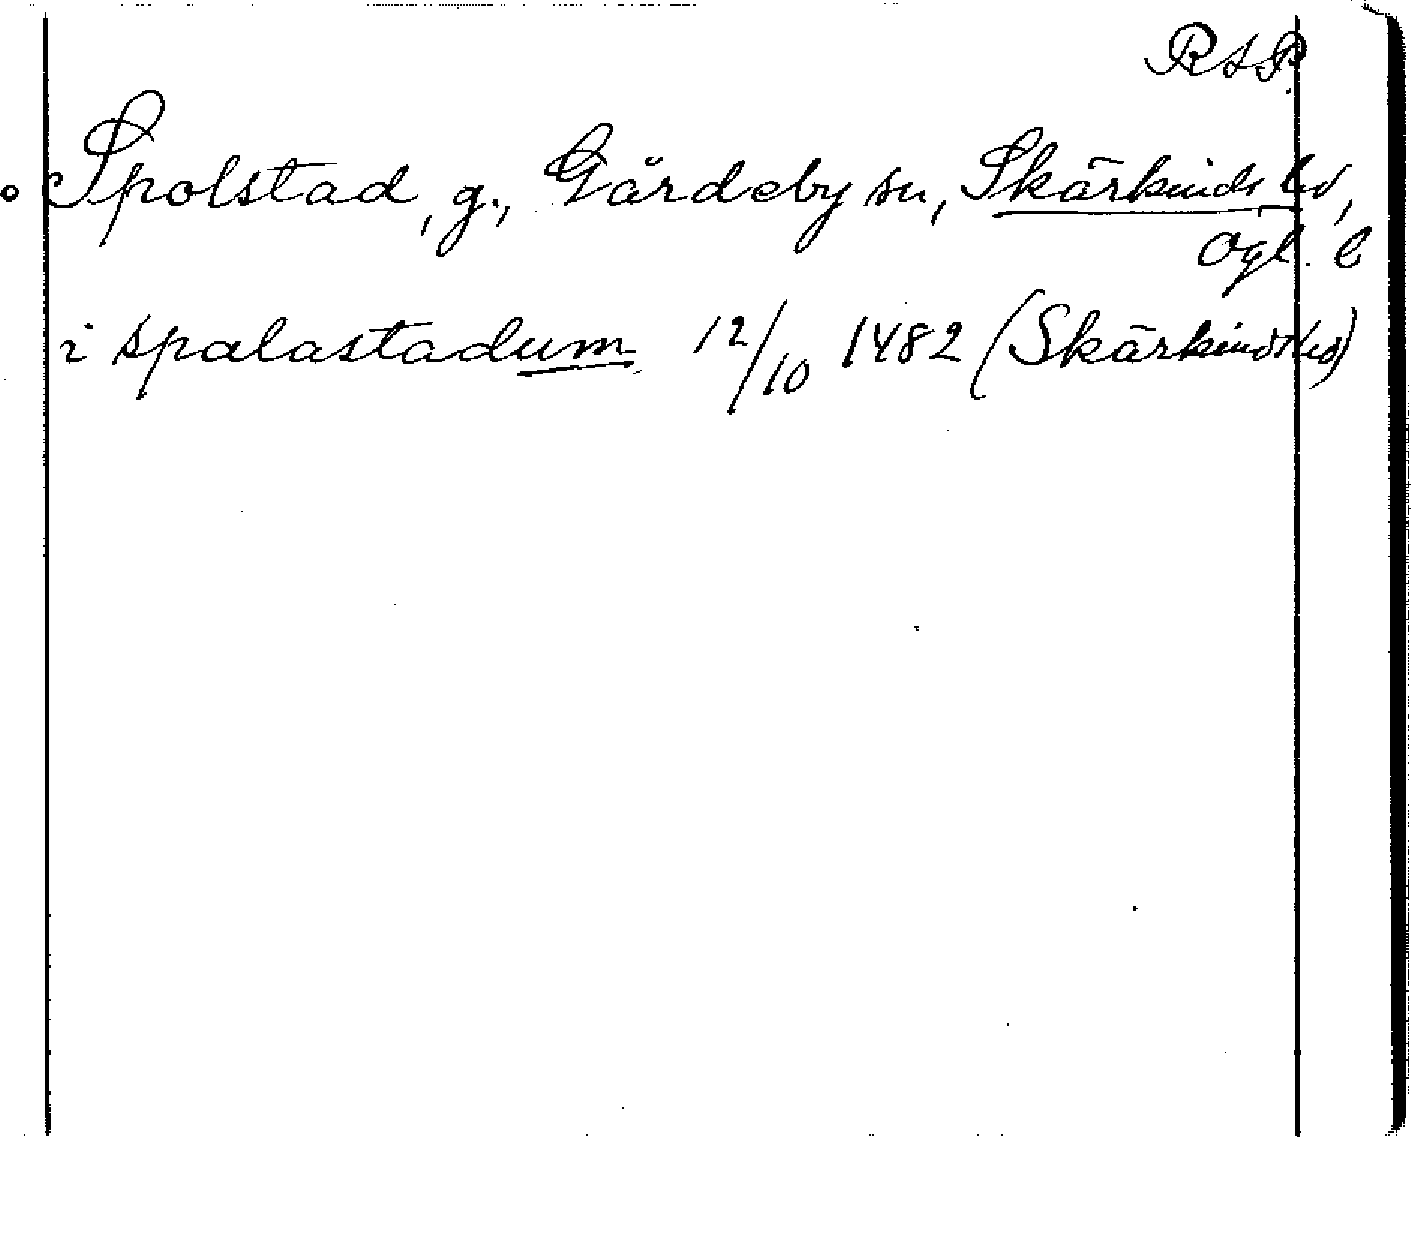 RAP.
Spolstad, g., Gårdeby sn, Skärkinds hd,
Ögl. l
i spalastadum 12/10 1482 (Skärkinds hd)